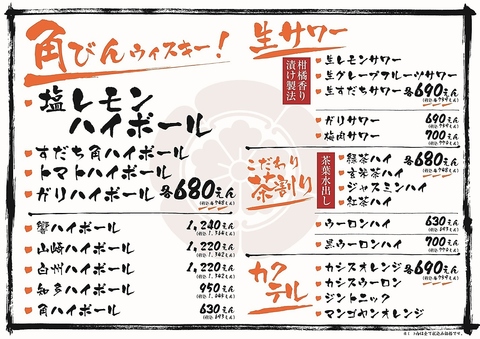 角びんウィスキー!
塩レモン
ハイボール
すだち角ハイボール
トマトハイボール
ガリハイボール 各680えん
(税込 各748えん)
響ハイボール 1,240えん
山崎ハイボール 1,220えん
(税込 1,342えん)
白州ハイボール 1,220えん
(税込 1,342えん)
知多ハイボール 950えん
(税込 1,045えん)
角ハイボール 630えん
(税込 693えん)
生サワー
柑橘香り
漬け製法
生レモンサワー
生グレープフルーツサワー
生すだちサワー 各690えん
(税込 各759えん)
ガリサワー 690えん
(税込 759えん)
梅肉サワー 700えん
(税込 770えん)
こだわり
茶割り
茶葉水出し
緑茶ハイ 各680えん
(税込 各748えん)
玄米茶ハイ
ジャスミンハイ
紅茶ハイ
ウーロンハイ 630えん
(税込 693えん)
黒ウーロンハイ 700えん
(税込 770えん)
カクテル
カシスオレンジ 各690えん
(税込 各759えん)
カシスウーロン
ジントニック
マンゴヤンオレンジ